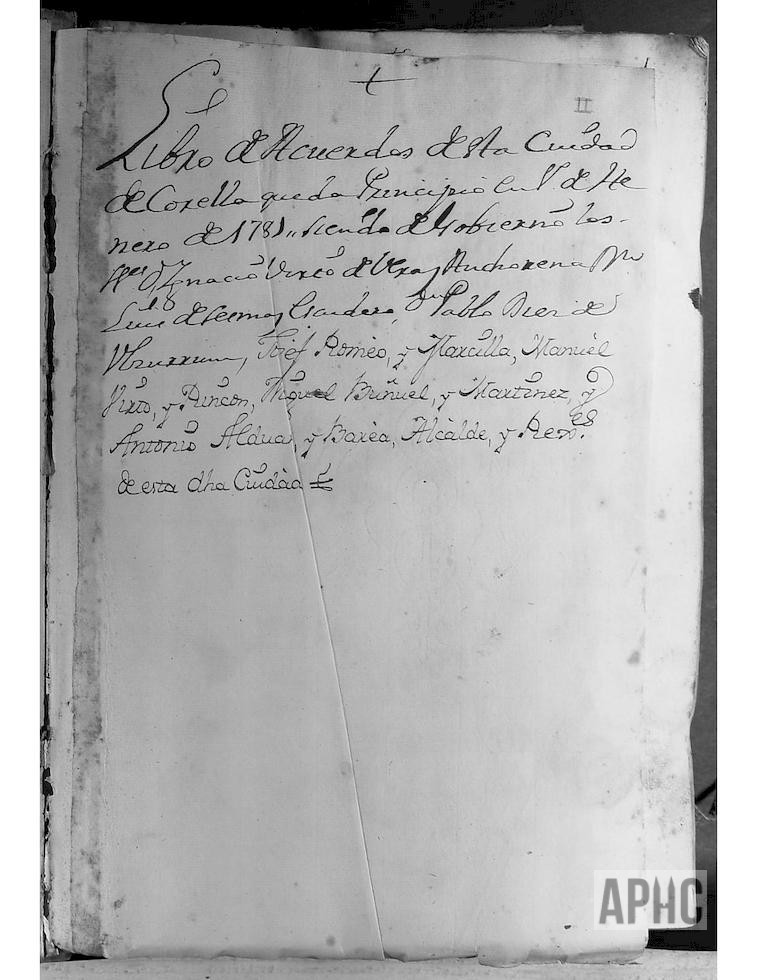 1
II
Libro de Acuerdos de esta Ciudad
de Corella que da Principio en 1º de He
nero de 1781,, siendo de Gobierno los
Sres Dn Ygnacio Virto de Vera, y Anchorena Dn
Luis de Sesma, y Escudero, Dn Pablo Diez de
Ulzurrum, Josef Romeo, y Marcilla, Manuel
Virto, y Rincon, Miguel Buñuel, y Martinez, y
Antonio Alduai, y Barèa, Alcàlde, y Rexores
de esta dha Ciudàd
APHC